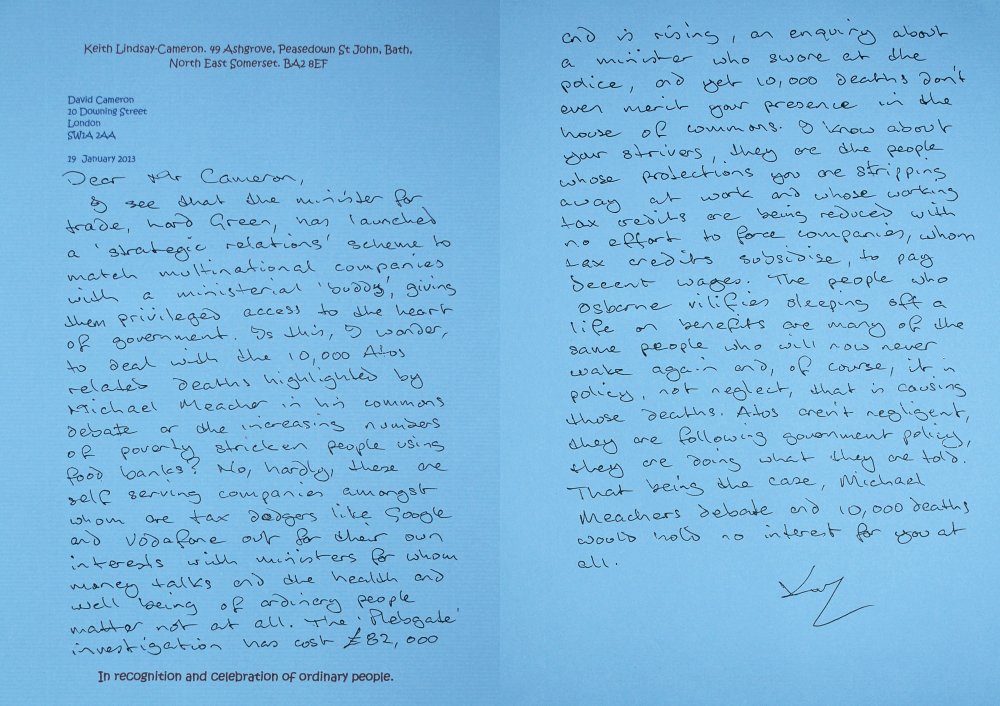 Keith Lindsay-Cameron. 49 Ashgrove, Peasedown St John, Bath,
North East Somerset. BA2 8EF
David Cameron
10 Downing Street
London
SW1A 2AA
19 January 2013
Dear Mr Cameron,
I see that the minister for
trade, Lord Green, has launched
a 'strategic relations' scheme to
match multinational companies
with a ministerial 'buddy', giving
them privileged access to the heart
of government. Is this, I wonder,
to deal with the 10,000 Atos
related deaths highlighted by
Michael Meacher in his commons
debate or the increasing numbers
of poverty stricken people using
food banks? No, hardly, these are
self serving companies amongst
whom are tax dodgers like Google
and Vodafone out for their own
interests with ministers for whom
money talks and the health and
well being of ordinary people
matter not at all. The 'Plebgate'
investigation has cost £82,000
In recognition and celebration of ordinary people.
and is rising, an enquiry about
a minister who swore at the
police, and yet 10,000 deaths don't
even merit your presence in the
house of commons. I know about
your strivers, they are the people
whose protections you are stripping
away at work and whose working
tax credits are being reduced with
no effort to force companies, whom
tax credits subsidise, to pay
decent wages. The people who
Osborne vilifies sleeping off a
life on benefits are many of the
same people who will now never
wake again and, of course, it is
policy, not neglect, that is causing
those deaths. Atos aren't negligent,
they are following government policy,
they are doing what they are told.
That being the case, Michael
Meachers debate and 10,000 deaths
would hold no interest for you at
all.